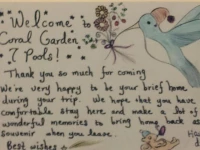 Welcome to
Coral Garden
7 Pools!
Thank you so much for coming
We're very happy to be your brief home
during your trip. We hope that you have
comfortable stay here and make a lot of
wonderful memories to bring home as
souvenir when you leave.
Best wishes